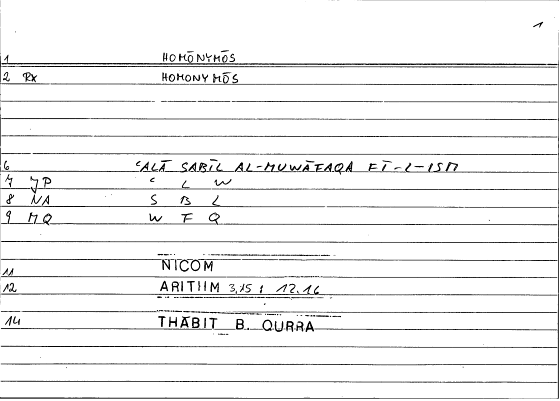 1
1 HOMŌNYMŌS
2 Rx HOMONYMŌS
6 ʿALĀ SABĪL AL-MUWĀFAQA FĪ-L-ISM
7 JP ʿ L W
8 NA S B L
9 MQ W F Q
11 NICOM
12 ARITHM 3,15 : 12.16
14 THĀBIT B. QURRA